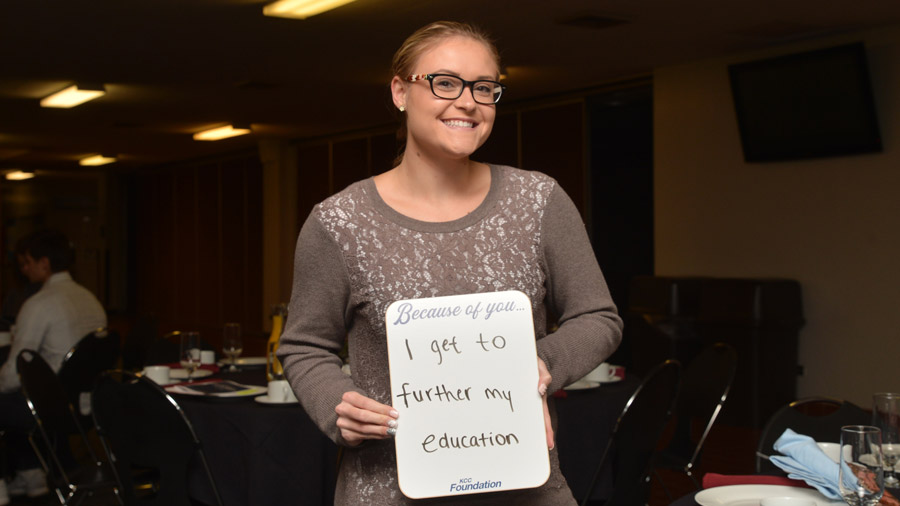 Because of you...
I get to
further my
education
KCC
Foundation